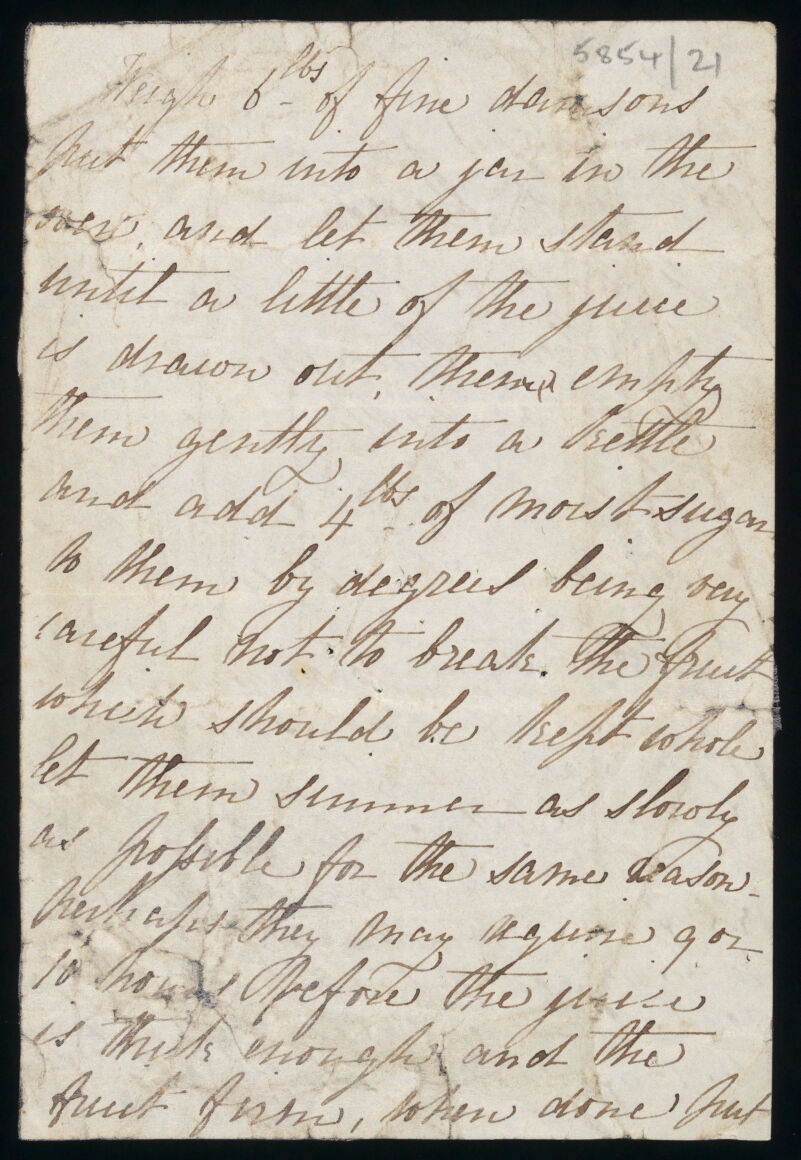 5854/21
Weigh 6lbs of fine damsons
put them into a jar in the
oven, and let them stand
until a little of the juice
is drawn out, them empty
them gently into a kettle
and add 4lbs of moist sugar
to them by degrees being very
careful not to break the fruit
which should be kept whole
let them simmer as slowly
as possible for the same reason
perhaps they may require 9 or
10 hours before the juice
is thick enough and the
fruit firm, when done put